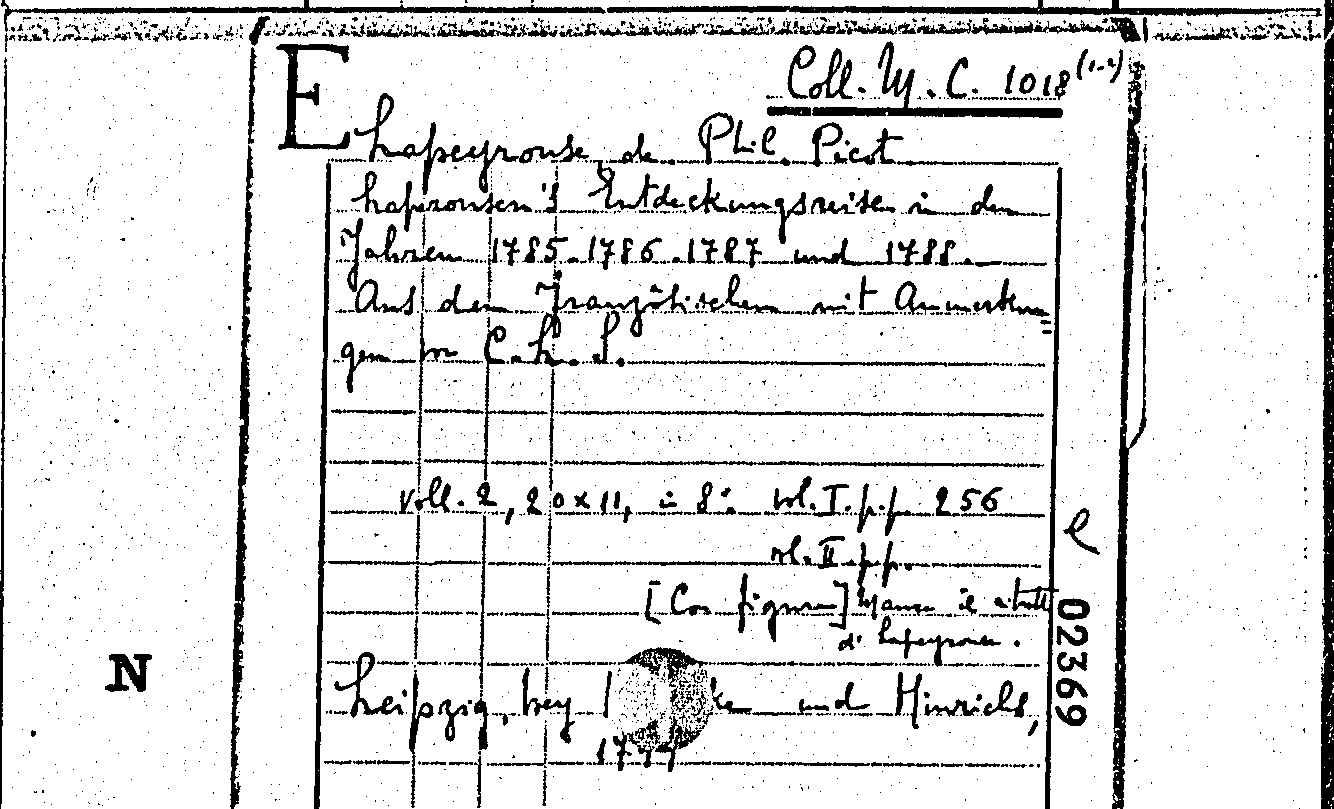 E
Coll. M. C. 1018 (1-2)
Lapeyrouse, de. Phil. Picot.
Laperousen's Entdeckungsreise in den
Jahren 1785.1786.1787 und 1788.
Aus dem Französischen mit Anmerkun=
gen von C. L. S.
voll. 2, 20x11, in 8°. vol. I. p.p. 256
vol. II. p.p.
[Con figura] Manca il
di Lapeyrouse.
Leipzig, bey und Hinrichs,
e
02369
N